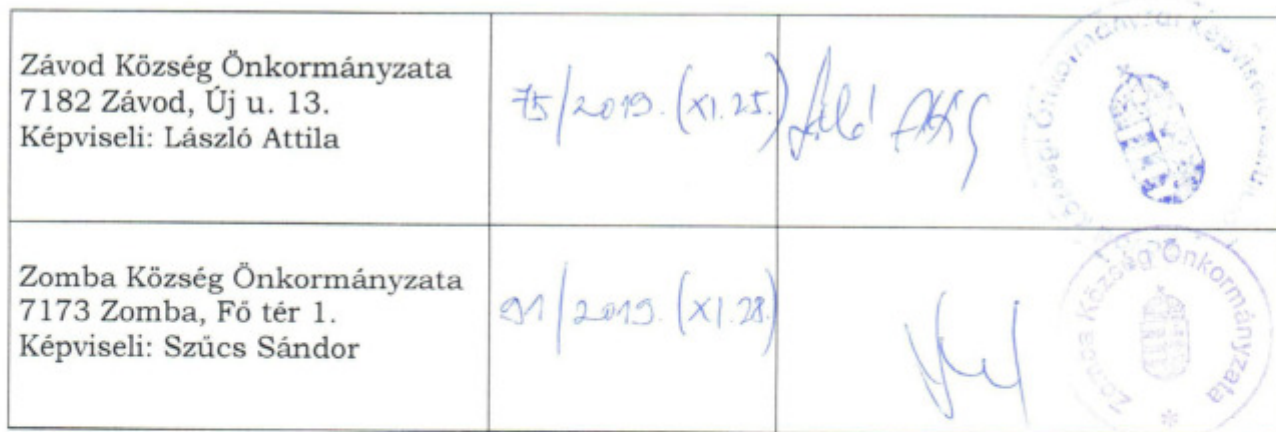 Závod Község Önkormányzata
7182 Závod, Új u. 13.
Képviseli: László Attila
75/2019. (XI.25.)
Községi Önkormányzat Képviselőtestü
Zomba Község Önkormányzata
7173 Zomba, Fő tér 1.
Képviseli: Szűcs Sándor
91/2019. (XI.28.)
Zomba Község Önkormányzata
*